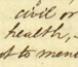 civil or
health,
not to men